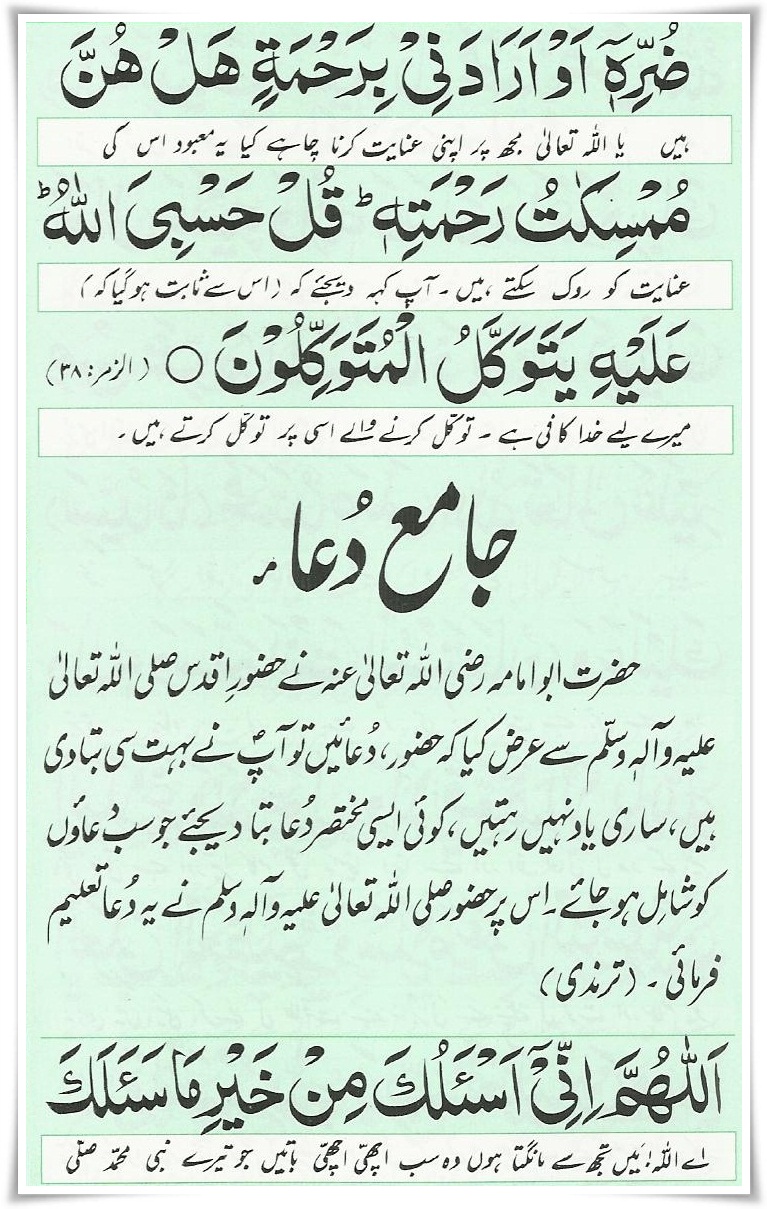 ضُرِّهٖۤ اَوْ اَرَادَنِیْ بِرَحْمَةٍ هَلْ هُنَّ
ہیں یا اللہ تعالیٰ مجھ پر اپنی عنایت کرنا چاہے کیا یہ معبود اس کی
مُمْسِكٰتُ رَحْمَتِهٖ ؕ قُلْ حَسْبِیَ اللّٰهُ ؕ
عنایت کو روک سکتے ہیں ۔ آپ کہہ دیجئے کہ (اس سے ثابت ہو گیا کہ)
عَلَیْهِ یَتَوَكَّلُ الْمُتَوَكِّلُوْنَ ○ (الزمر: ۳۸)
میرے لیے خدا کافی ہے ۔ توکّل کرنے والے اسی پر توکّل کرتے ہیں ۔
جامع دُعا
حضرت ابو امامہ رضی اللہ تعالیٰ عنہ نے حضورِ اقدس صلی اللہ تعالیٰ
علیہ وآلہٖ وسلّم سے عرض کیا کہ حضور، دُعائیں تو آپؐ نے بہت سی بتا دی
ہیں، ساری یاد نہیں رہتیں، کوئی ایسی مختصر دُعا بتا دیجئے جو سب دُعاؤں
کو شامِل ہو جائے۔ اس پر حضور صلی اللہ تعالیٰ علیہ وآلہٖ وسلم نے یہ دُعا تعلیم
فرمائی ۔ (ترمذی)
اَللّٰهُمَّ اِنِّیْۤ اَسْئَلُكَ مِنْ خَیْرِ مَا سَئَلَكَ
اے اللہ! مَیں تجھ سے مانگتا ہوں وہ سب اچھّی اچھّی باتیں جو تیرے نبی محمّد صلّی